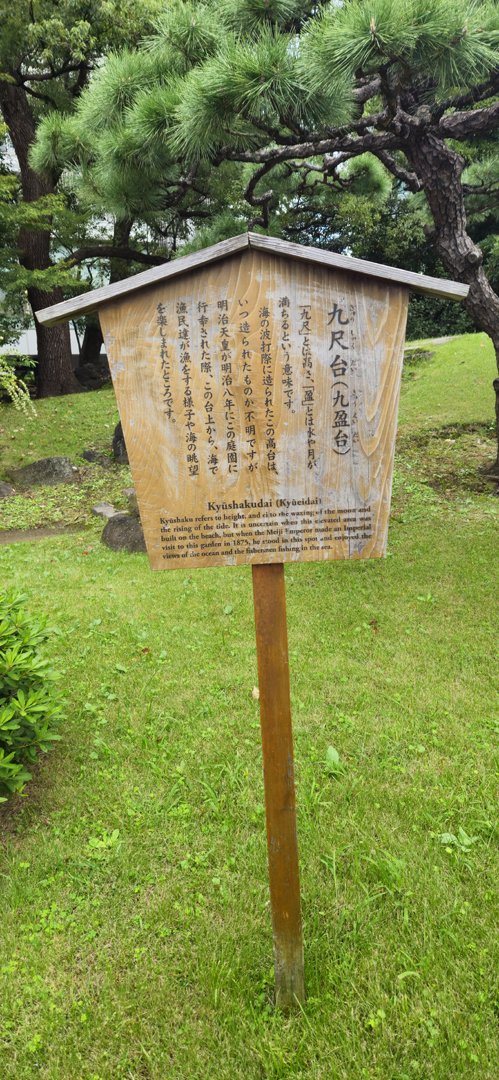 九尺台（九盈台）
「九尺」とは高さ、「盈」とは水や月が
満ちるという意味です。
海の波打際に造られたこの高台は、
いつ造られたものか不明ですが
明治天皇が明治八年にこの庭園に
行幸された際、この台上から、海で
漁民達が漁をする様子や海の眺望
を楽しまれたところです。
Kyūshakudai (Kyūeidai)
Kyūshaku refers to height, and ei to the waxing of the moon and
the rising of the tide. It is uncertain when this elevated area was
built on the beach, but when the Meiji Emperor made an Imperial
visit to this garden in 1875, he stood in this spot and enjoyed the
views of the ocean and the fishermen fishing in the sea.